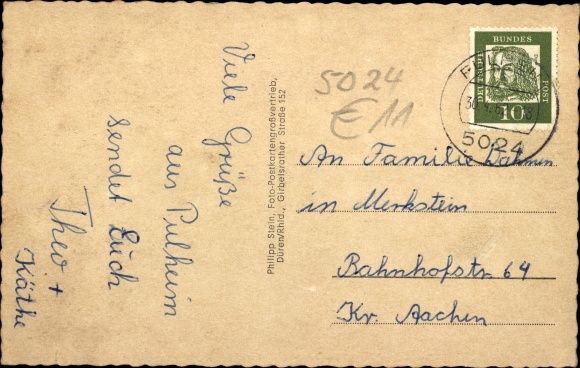 Viele Grüße
aus Pulheim
sendet Euch
Theo +
Käthe
Philipp Stein, Foto-Postkartengroßvertrieb,
Düren/Rhld., Girbelsrather Straße 152
5024
€ 11
DEUTSCHE
BUNDES
POST
10
5024
An Familie Dahmen
in Merkstein
Bahnhofstr. 64
Kr. Aachen